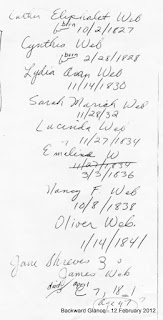 Eliphalet Web
born 10/2/1827
Cynthia Web
born 2/28/1828
Lydia Ann Web
11/14/1830
Sarah Mariah Web
11/28/32
Lucinda Web
11/27/1834
Emeline W
11/27/1834
3/3/1836
Nancy F. Web
10/8/1838
Oliver Web.
1/14/1841
Jane Shreves 3
James Web
Backward Glances - 12 February 2012